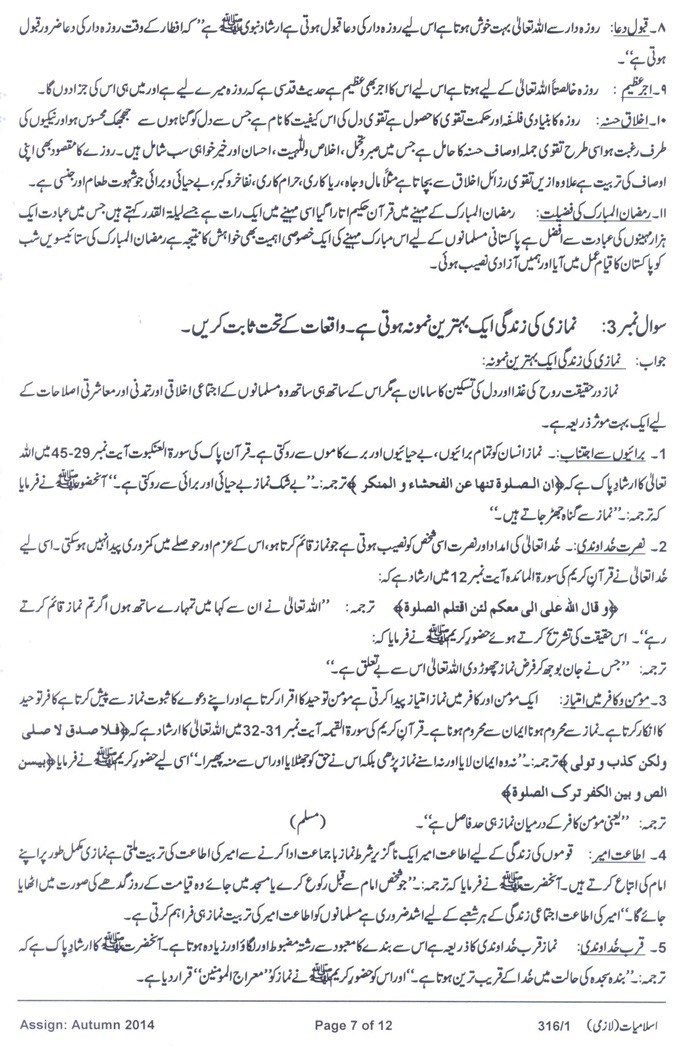 ۸۔ قبول دعا: روزہ دار سے اللہ تعالیٰ بہت خوش ہوتا ہے اس لیے روزہ دار کی دعا قبول ہوتی ہے ارشاد نبوی ﷺ ہے ’’کہ افطار کے وقت روزہ دار کی دعا ضرور قبول
ہوتی ہے‘‘۔
۹۔ اجر عظیم: روزہ خالصتاً اللہ تعالیٰ کے لیے ہوتا ہے اس لیے اس کا اجر بھی عظیم ہے حدیث قدسی ہے کہ روزہ میرے لیے ہے اور میں ہی اس کی جزا دوں گا۔
۱۰۔ اخلاق حسنہ: روزہ کا بنیادی فلسفہ اور حکمت تقویٰ کا حصول ہے تقویٰ دل کی اس کیفیت کا نام ہے جس سے دل کو گناہوں سے جھجھک محسوس ہو اور نیکیوں کی
طرف رغبت ہو اسی طرح تقویٰ جملہ اوصاف حسنہ کا حامل ہے جس میں صبر و تحمل، اخلاص و للہیت، احسان اور خیر خواہی سب شامل ہیں۔ روزے کا مقصود بھی اپنی
اوصاف کی تربیت ہے علاوہ ازیں تقویٰ رزائل اخلاق سے بچاتا ہے مثلاً مال و جاہ، ریا کاری، حرام کاری، تفاخر و کبر، بے حیائی و برائی جو شہوت طعام اور جنسی ہے۔
۱۱۔ رمضان المبارک کی فضیلت: رمضان المبارک کے مہینے میں قرآن حکیم اتارا گیا اسی مہینے میں ایک رات ہے جسے لیلۃ القدر کہتے ہیں جس میں عبادت ایک
ہزار مہینوں کی عبادت سے افضل ہے پاکستانی مسلمانوں کے لیے اس مبارک مہینے کی ایک خصوصی اہمیت بھی خواہش کا نتیجہ ہے رمضان المبارک کی ستائیسویں شب
کو پاکستان کا قیام عمل میں آیا اور ہمیں آزادی نصیب ہوئی۔
سوال نمبر 3: نمازی کی زندگی ایک بہترین نمونہ ہوتی ہے۔ واقعات کے تحت ثابت کریں۔
جواب: نمازی کی زندگی ایک بہترین نمونہ:
نماز در حقیقت روح کی غذا اور دل کی تسکین کا سامان ہے مگر اس کے ساتھ ہی ساتھ وہ مسلمانوں کے اجتماعی اخلاقی اور تمدنی اور معاشرتی اصلاحات کے
لیے ایک بہت موثر ذریعہ ہے۔
1۔ برائیوں سے اجتناب:۔ نماز انسان کو تمام برائیوں، بے حیائیوں اور برے کاموں سے روکتی ہے۔ قرآن پاک کی سورۃ العنکبوت آیت نمبر 29-45 میں اللہ
تعالیٰ کا ارشاد پاک ہے کہ ﴿ان الصلوة تنها عن الفحشاء و المنكر﴾ ترجمہ:۔ ’’بے شک نماز بے حیائی اور برائی سے روکتی ہے۔‘‘ آنحضور ﷺ نے فرمایا
کہ ترجمہ:۔ ’’نماز سے گناہ جھڑ جاتے ہیں۔‘‘
2۔ نصرت خداوندی:۔ خدا تعالیٰ کی امداد اور نصرت اسی شخص کو نصیب ہوتی ہے جو نماز قائم کرتا ہو، اس کے عزم اور حوصلے میں کمزوری پیدا نہیں ہو سکتی۔ اسی لیے
خدا تعالیٰ نے قرآن کریم کی سورۃ المائدہ آیت نمبر 12 میں ارشاد ہے کہ:
﴿و قال الله على الى معكم لئن اقتلم الصلوة﴾ ترجمہ: ’’اللہ تعالیٰ نے ان سے کہا میں تمہارے ساتھ ہوں اگر تم نماز قائم کرتے
رہے‘‘۔ اس حقیقت کی تشریح کرتے ہوئے حضور کریم ﷺ نے فرمایا کہ:
ترجمہ: ’’جس نے جان بوجھ کر فرض نماز چھوڑ دی اللہ تعالیٰ اس سے بے تعلق ہے۔‘‘
3۔ مومن و کافر میں امتیاز: ایک مومن اور کافر میں نماز امتیاز پیدا کرتی ہے مومن توحید کا اقرار کرتا ہے اور اپنے دعوے کا ثبوت نماز سے پیش کرتا ہے کافر توحید
کا انکار کرتا ہے۔ نماز سے محروم ہونا ایمان سے محروم ہونا ہے۔ قرآن کریم کی سورۃ القیمہ آیت نمبر 31-32 میں اللہ تعالیٰ کا ارشاد ہے کہ ﴿فلا صدق لا صلى
ولكن كذب و تولى﴾ ترجمہ:۔ ’’نہ وہ ایمان لایا اور نہ اسنے نماز پڑھی بلکہ اس نے حق کو جھٹلایا اور اس سے منہ پھیرا۔‘‘ اسی لیے حضور کریم ﷺ نے فرمایا ﴿بيسن
الص و بين الكفر ترك الصلوة﴾
ترجمہ: ’’یعنی مومن کافر کے درمیان نماز ہی حد فاصل ہے‘‘۔ (مسلم)
4۔ اطاعت امیر: قوموں کی زندگی کے لیے اطاعت امیر ایک ناگزیر شرط نماز با جماعت ادا کرنے سے امیر کی اطاعت کی تربیت ملتی ہے نمازی مکمل طور پر اپنے
امام کی اتباع کرتے ہیں۔ آنحضرت ﷺ نے فرمایا کہ ترجمہ:۔ ’’جو شخص امام سے قبل رکوع کرے یا سجدہ میں جائے وہ قیامت کے روز گدھے کی صورت میں اٹھایا
جائے گا۔‘‘ امیر کی اطاعت اجتماعی زندگی کے ہر شعبے کے لیے اشد ضروری ہے مسلمانوں کو اطاعت امیر کی تربیت نماز ہی فراہم کرتی ہے۔
5۔ قرب خداوندی: نماز قرب خداوندی کا ذریعہ ہے اس سے بندے کا معبود سے رشتہ مضبوط اور لگاؤ اور زیادہ ہوتا ہے۔ آنحضرت ﷺ کا ارشاد پاک ہے کہ
ترجمہ:۔ ’’بندہ سجدہ کی حالت میں خدا کے قریب ترین ہوتا ہے۔‘‘ اور اس کو حضور کریم ﷺ نے نماز کو ’’معراج المومنین‘‘ قرار دیا ہے۔
Assign: Autumn 2014 Page 7 of 12 316/1 اسلامیات (لازمی)